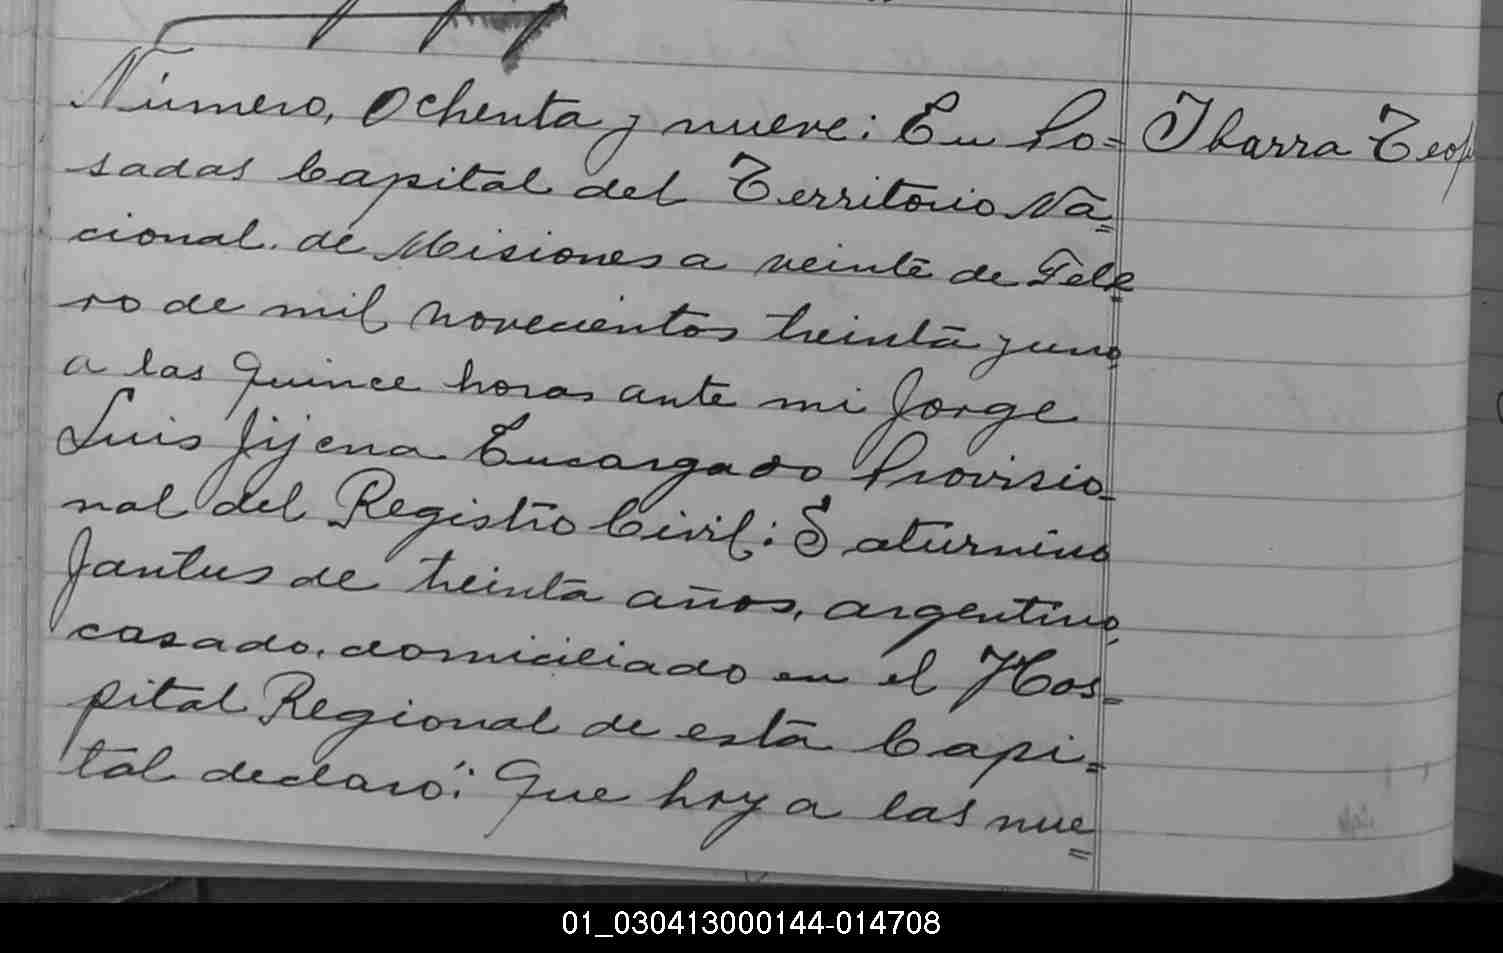 Número, Ochenta y nueve: En Po=
Ibarra Teof
sadas Capital del Territorio Na=
cional de Misiones a veinte de Febre
ro de mil novecientos treinta y uno
a las quince horas ante mi Jorge
Luis Jijena Encargado Provisio-
nal del Registro Civil: Saturnino
Jantus de treinta años, argentino,
casado, domiciliado en el Hos=
pital Regional de esta Capi=
tal declaró: Que hoy a las nue=
01_030413000144-014708